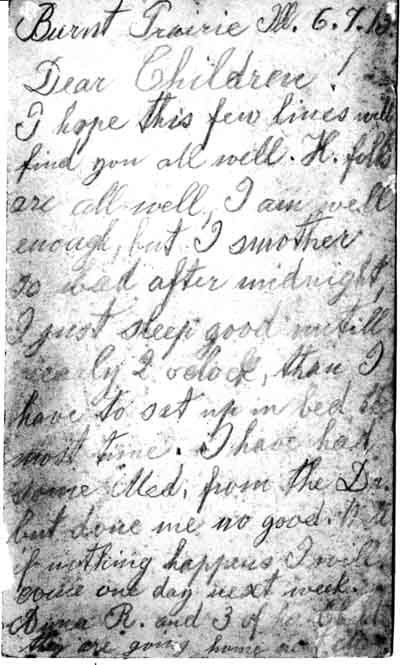 Burnt Prairie Ill. 6.7.13
Dear Children!
I hope this few lines will
find you all well. H. folks
are all well, I am well
enough, but I smother
so bad after midnight,
I just sleep good untill
nearly 2 oclock, than I
have to set up in bed the
most time. I have had
some Med, from the Dr.
but done me no good.
if nothing happens I will
come one day next week.
R. and 3 of her
they are going home